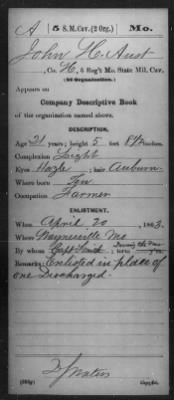 A | 5 S.M. Cav. (2 Org.) | Mo.
John H. Aust
, Co. H, 5 Reg't Mo. State Mil. Cav.
(2d Organization.)
Appears on
Company Descriptive Book
of the organization named above.
DESCRIPTION.
Age 21 years; height 5 feet 8 1/2 inches.
Complexion Light
Eyes Hazle ; hair Auburn
Where born Ten
Occupation Farmer
ENLISTMENT.
When April 20 , 1863.
Where Waynesville Mo
During the War
By whom Capt Smith ; term y'rs.
Remarks: Enlisted in place of
one Discharged.
Copyist.